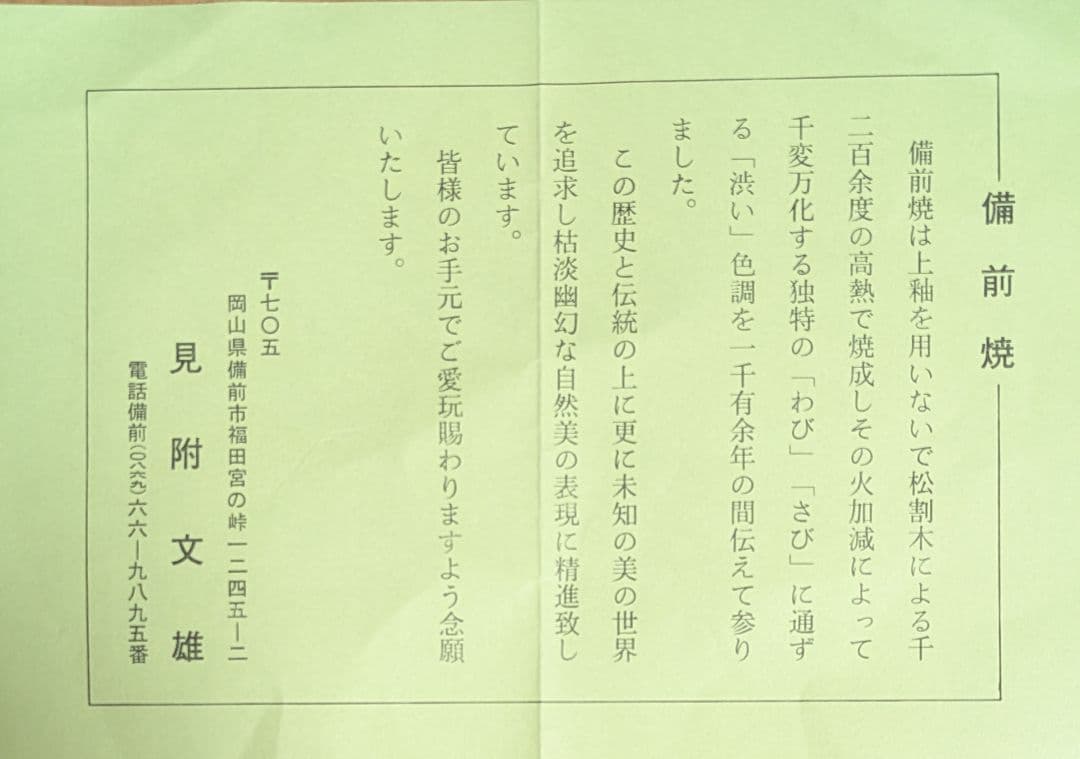 備前焼
備前焼は上釉を用いないで松割木による千
二百余度の高熱で焼成しその火加減によって
千変万化する独特の「わび」「さび」に通ず
る「渋い」色調を一千有余年の間伝えて参り
ました。
この歴史と伝統の上に更に未知の美の世界
を追求し枯淡幽幻な自然美の表現に精進致し
ています。
皆様のお手元でご愛玩賜わりますよう念願
いたします。
〒七〇五
岡山県備前市福田宮の峠一二四五―二
見附文雄
電話備前(〇八六九)六六―九八九五番